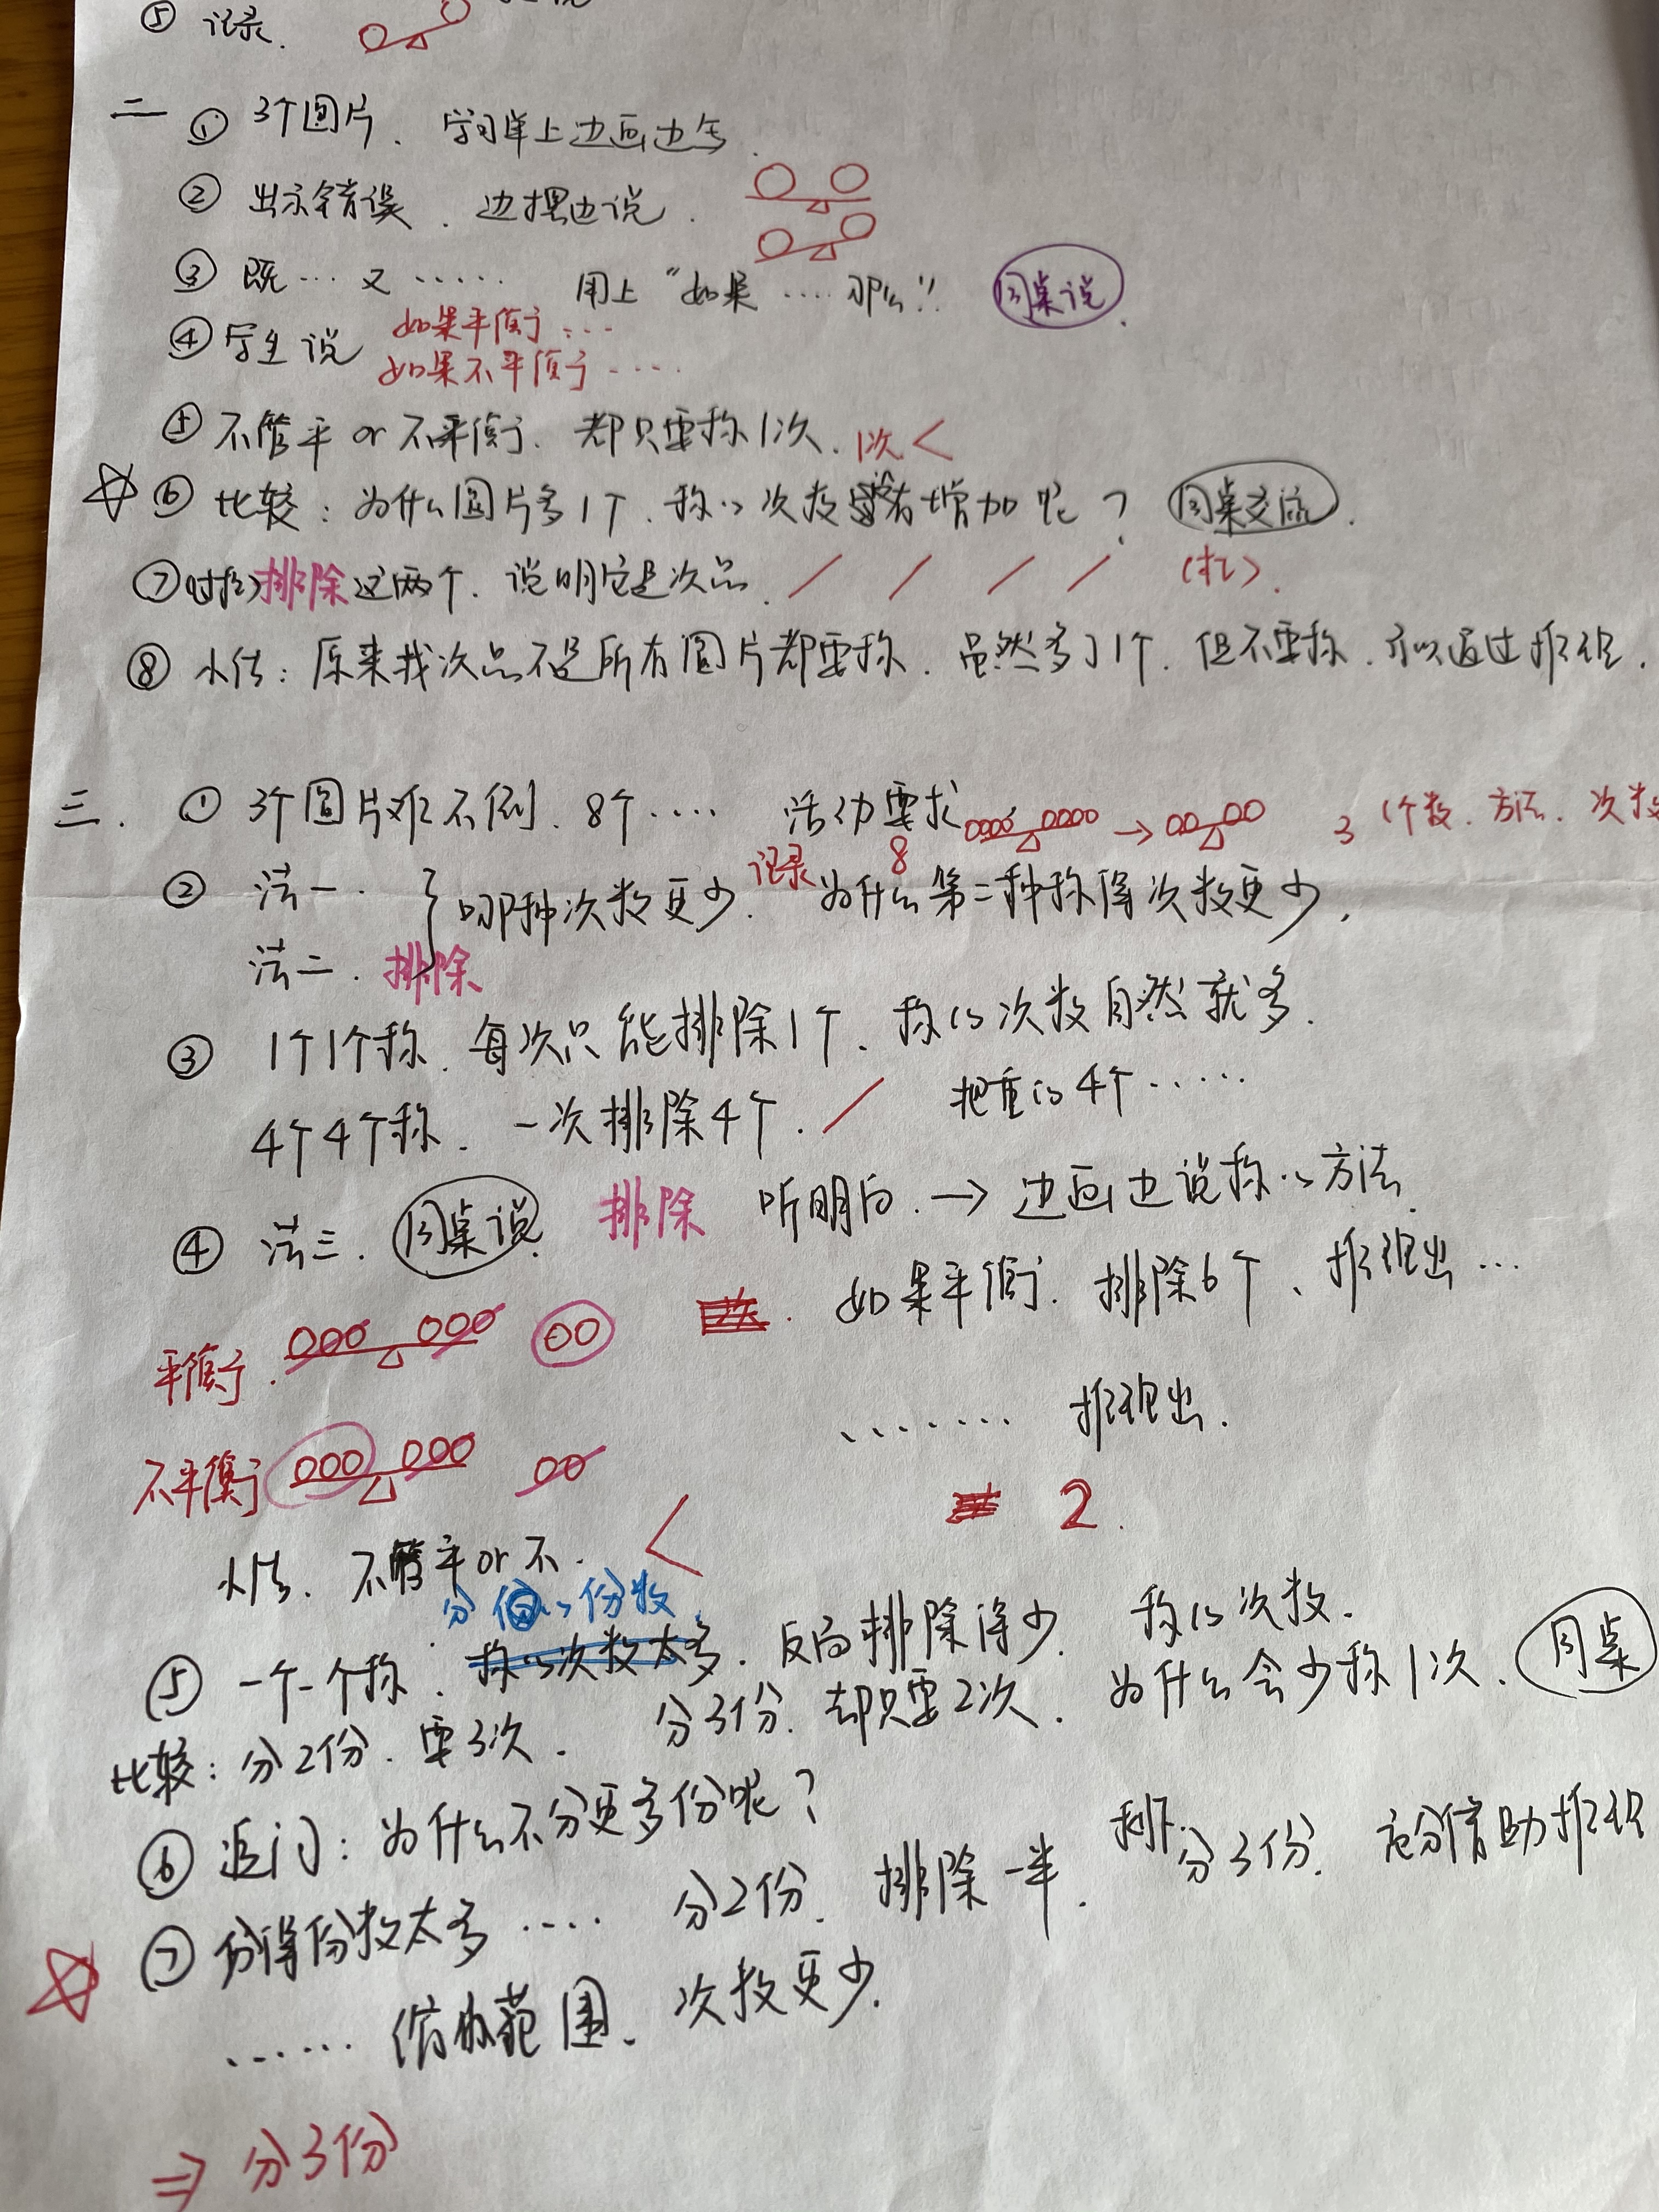 ⑤ 记录.
二 ① 3个圆片、学习单上边画边写.
② 出示错误、边摆边说.
③ 既…又…… 用上“如果……那么” 同桌说.
④ 学生说 如果平衡……
如果不平衡……
⑤ 不管平or不平衡、都只要称1次. 1次<
☆ ⑥ 比较: 为什么圆片多1个、称的次数没有增加呢? 同桌交流.
⑦ 排除这两个、说明它是次品. (扣).
⑧ 小结: 原来找次品不是所有圆片都要称、虽然多了1个、但不要称、可以通过推理.
三. ① 3个圆片难不倒、8个…. 活动要求 → 3 个数、方法、次数
② 法一. } 哪种次数更少. 记录 8 为什么第二种称得次数更少.
法二. 排除
③ 1个1个称、每次只能排除1个、称的次数自然就多.
4个4个称、一次排除4个. 把重的4个……
④ 法三. 同桌说. 排除 听明白. → 边画边说称的方法.
如果平衡、排除6个、推理出…
平衡.
……. 推理出.
不平衡
2.
小结、不管平or不. <
分 的份数
⑤ 一个一个称: 称的次数太多. 反而排除得少. 称的次数.
比较: 分2份、要3次. 分3份、却只要2次. 为什么会少称1次. 同桌
⑥ 追问: 为什么不分更多份呢?
☆ ⑦ 分得份数太多…. 分2份、排除一半. 分3份. 充分借助推理
…… 缩小范围、次数更少.
⇒ 分3份